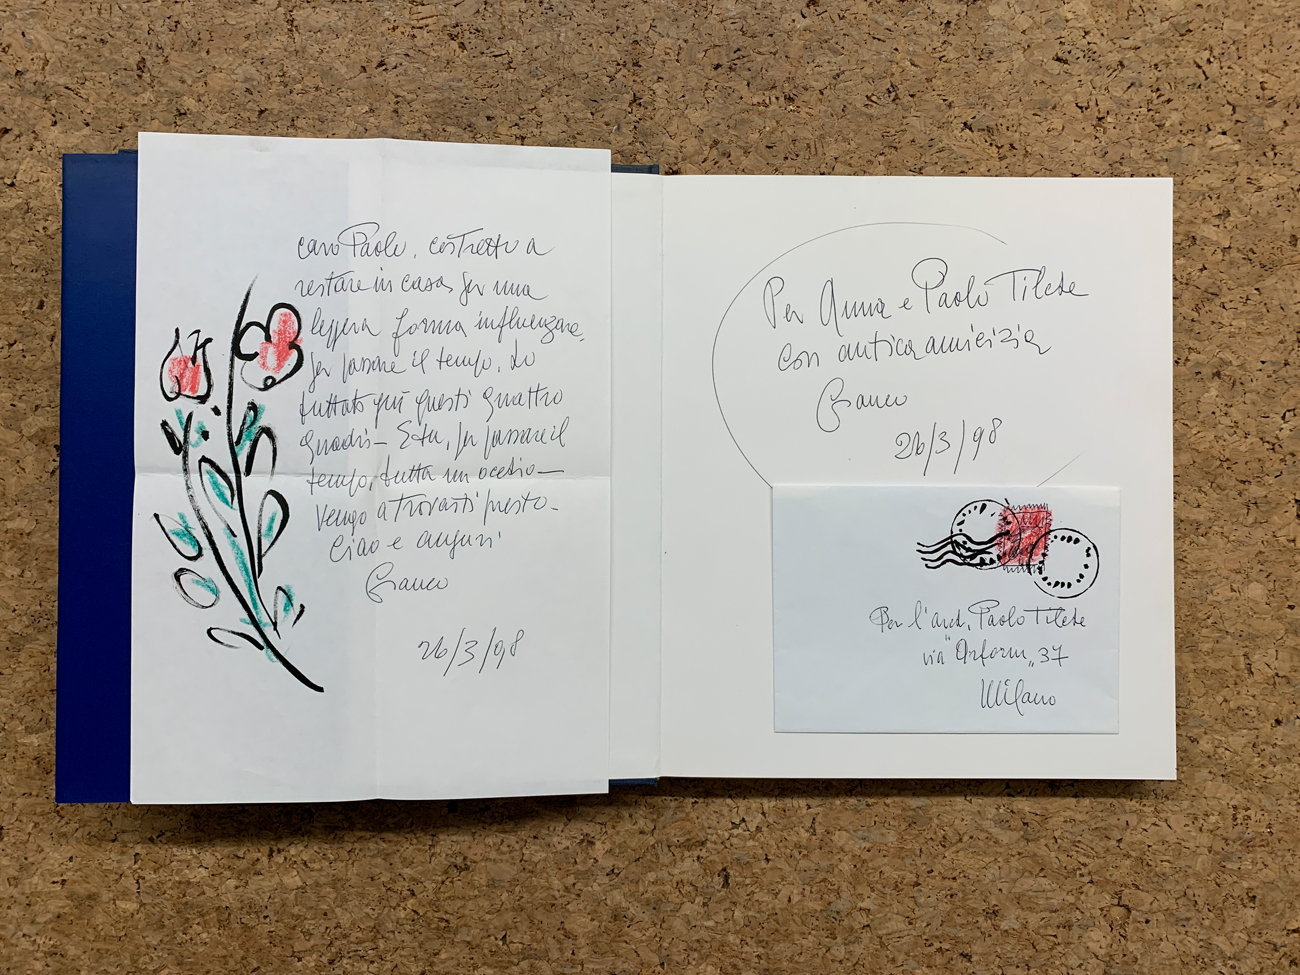 caro Paolo, costretto a
restare in casa per una
leggera forma influenzare,
per passare il tempo, ho
buttato giù questi quattro
. E tu, per passare il
tempo, butta un occhio —
Vengo a trovarti presto.
Ciao e auguri
Franco
26/3/98
Per Anna e Paolo Tilche
con antica amicizia
Franco
26/3/98
Per l'arch. Paolo Tilche
via "Arform" 37
Milano